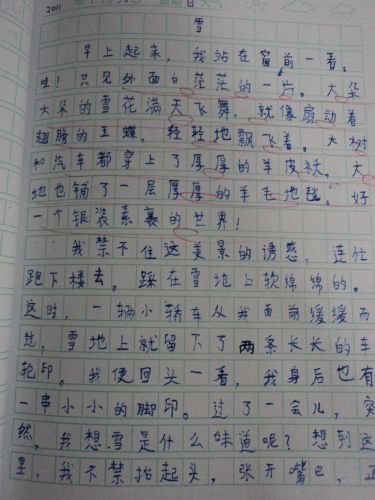 2011
雪
早上起来，我站在窗前一看，
哇！只见外面白茫茫的一片。大朵
大朵的雪花满天飞舞，就像扇动着
翅膀的玉蝶，轻轻地飘飞着。大树
和汽车都穿上了厚厚的羊皮袄，大
地也铺了一层厚厚的羊毛地毯。好
一个银装素裹的世界！
我禁不住这美景的诱惑，连忙
跑下楼去。踩在雪地上软绵绵的。
这时，一辆小轿车从我面前缓缓而
过，雪地上就留下了两条长长的车
轮印。我便回头一看，我身后也有
一串小小的脚印。过了一会儿，突
然，我想雪是什么味道呢？想到这
里，我不禁抬起头，张开嘴巴，正